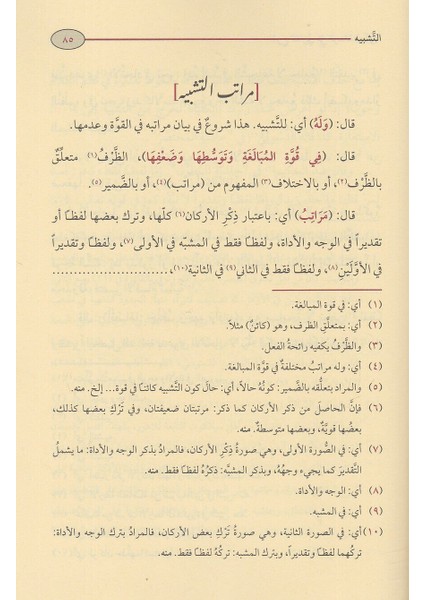 التَّشبيه
٨٥
[مراتب التشبيه]
قال: (وَلَهُ) أي: للتَّشبيه. هذا شروعٌ في بيان مراتبه في القوَّة وعدمها.
قال: (فِي قُوَّةِ المُبَالَغَةِ وَتَوَسُّطِهَا وَضَعْفِهَا)، الظَّرْفُ(١) متعلِّقٌ
بالظَّرْف(٢)، أو بالاختلاف(٣) المفهوم من (مراتب)(٤)، أو بالضَّمير(٥).
قال: (مَرَاتِبُ) أي: باعتبار ذِكْرِ الأركان(٦) كلِّها، وترك بعضها لفظًا أو
تقديرًا في الوجه والأداة، ولفظًا فقط في المشبَّه في الأولى(٧)، ولفظًا وتقديرًا
في الأوَّلَيْنِ(٨)، ولفظًا فقط في الثاني(٩) في الثانية(١٠)،..........................
(١) أي: في قوة المبالغة.
(٢) أي: بمتعلَّق الظرف، وهو (كائنٌ) مثلاً.
(٣) والظَّرْفُ يكفيه رائحةُ الفعل.
(٤) أي: وله مراتبُ مختلفةٌ في قوَّة المبالغة.
(٥) والمراد بتعلُّقه بالضَّمير: كونُهُ حالاً، أي: حالَ كون التَّشبيه كائنًا في قوة... إلخ. منه.
(٦) فإنَّ الحاصل من ذكر الأركان كما ذكر: مرتبتان ضعيفتان، وفي تَرْكِ بعضها كذلك،
بعضُها قويَّةٌ، وبعضها متوسطةٌ. منه.
(٧) أي: في الصُّورة الأولى، وهي صورةُ ذِكْرِ الأركان، فالمرادُ بذكر الوجه والأداة: ما يشملُ
التَّقديرَ كما يجيء وجهُهُ، وبذكر المشبَّه: ذكرُهُ لفظًا فقط. منه.
(٨) أي: الوجه والأداة.
(٩) أي: في المشبه.
(١٠) أي: في الصورة الثانية، وهي صورةُ تَرْكِ بعض الأركان، فالمرادُ بترك الوجه والأداة:
تركُهما لفظًا وتقديرًا، وبترك المشبه: تَرْكُهُ لفظًا فقط. منه.